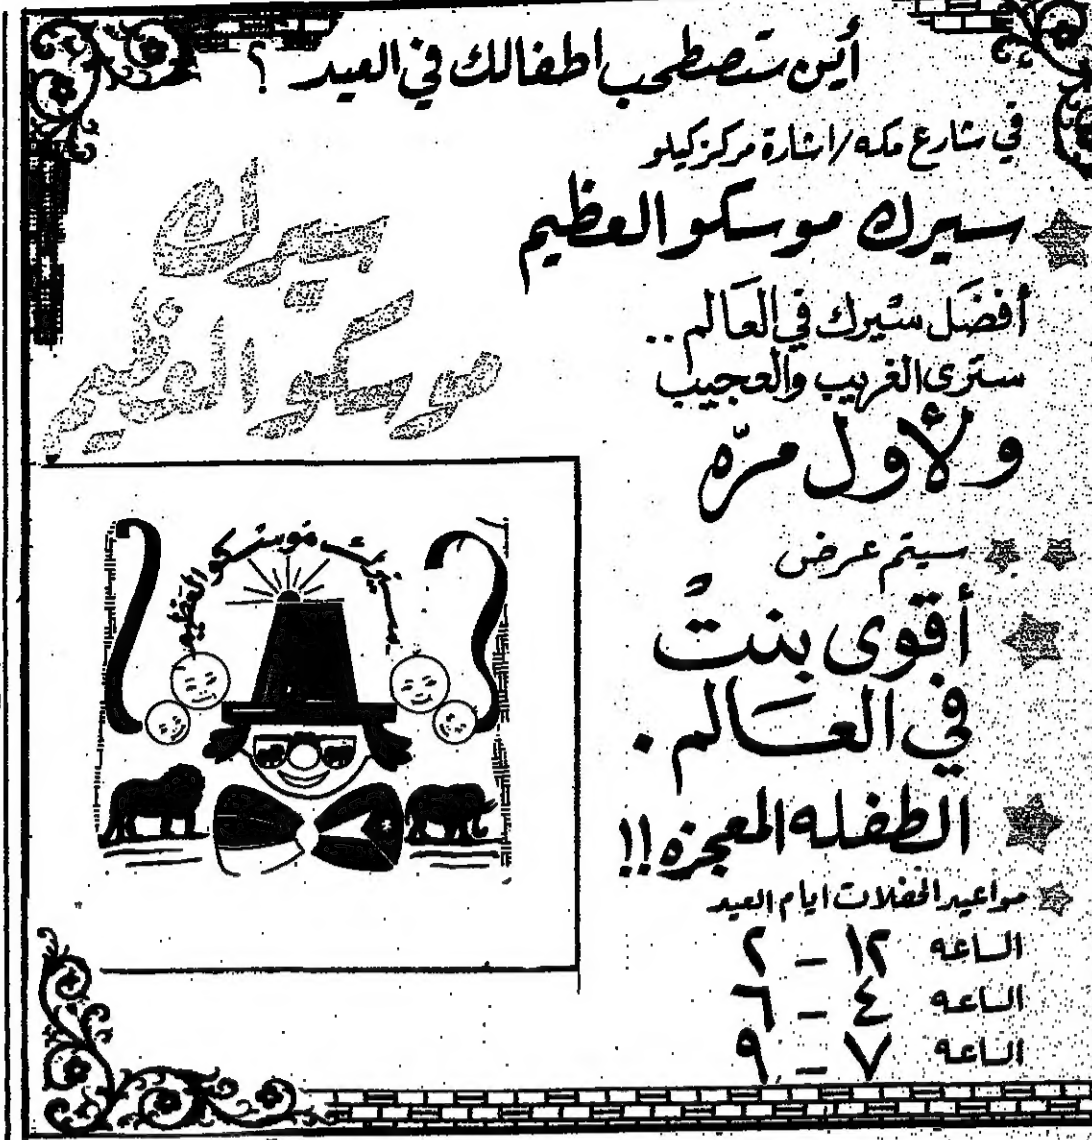 أين ستصطحب اطفالك في العيد ؟
في شارع مكه / اشارة مركز كيلو
سيرك موسكو العظيم
أفضَل سيرك في العَالم ..
سترى الغريب والعجيب
ولأول مرّه
سيتم عرض
أقوى بنتُ
في العَالم .
الطفله المعجزه !!
مواعيد الحفلات ايام العيد
الساعه ١٢ - ٢
الساعه ٤ - ٦
الساعه ٧ - ٩
سيرك
موسكو العظيم
سيرك موسكو العظيم